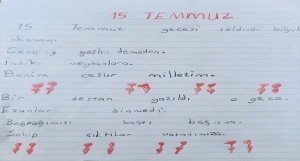 15 TEMMUZ
15 Temmuz gecesi saldırdı
Genç yaşlı demeden.
İndik meydanlara.
Benim cesur milletim.
Bir destan yazıldı o gece.
Ezanlar dinmedi.
Bayrağımızı bastı bağrına.
Sahip çıktılar vatanımıza.